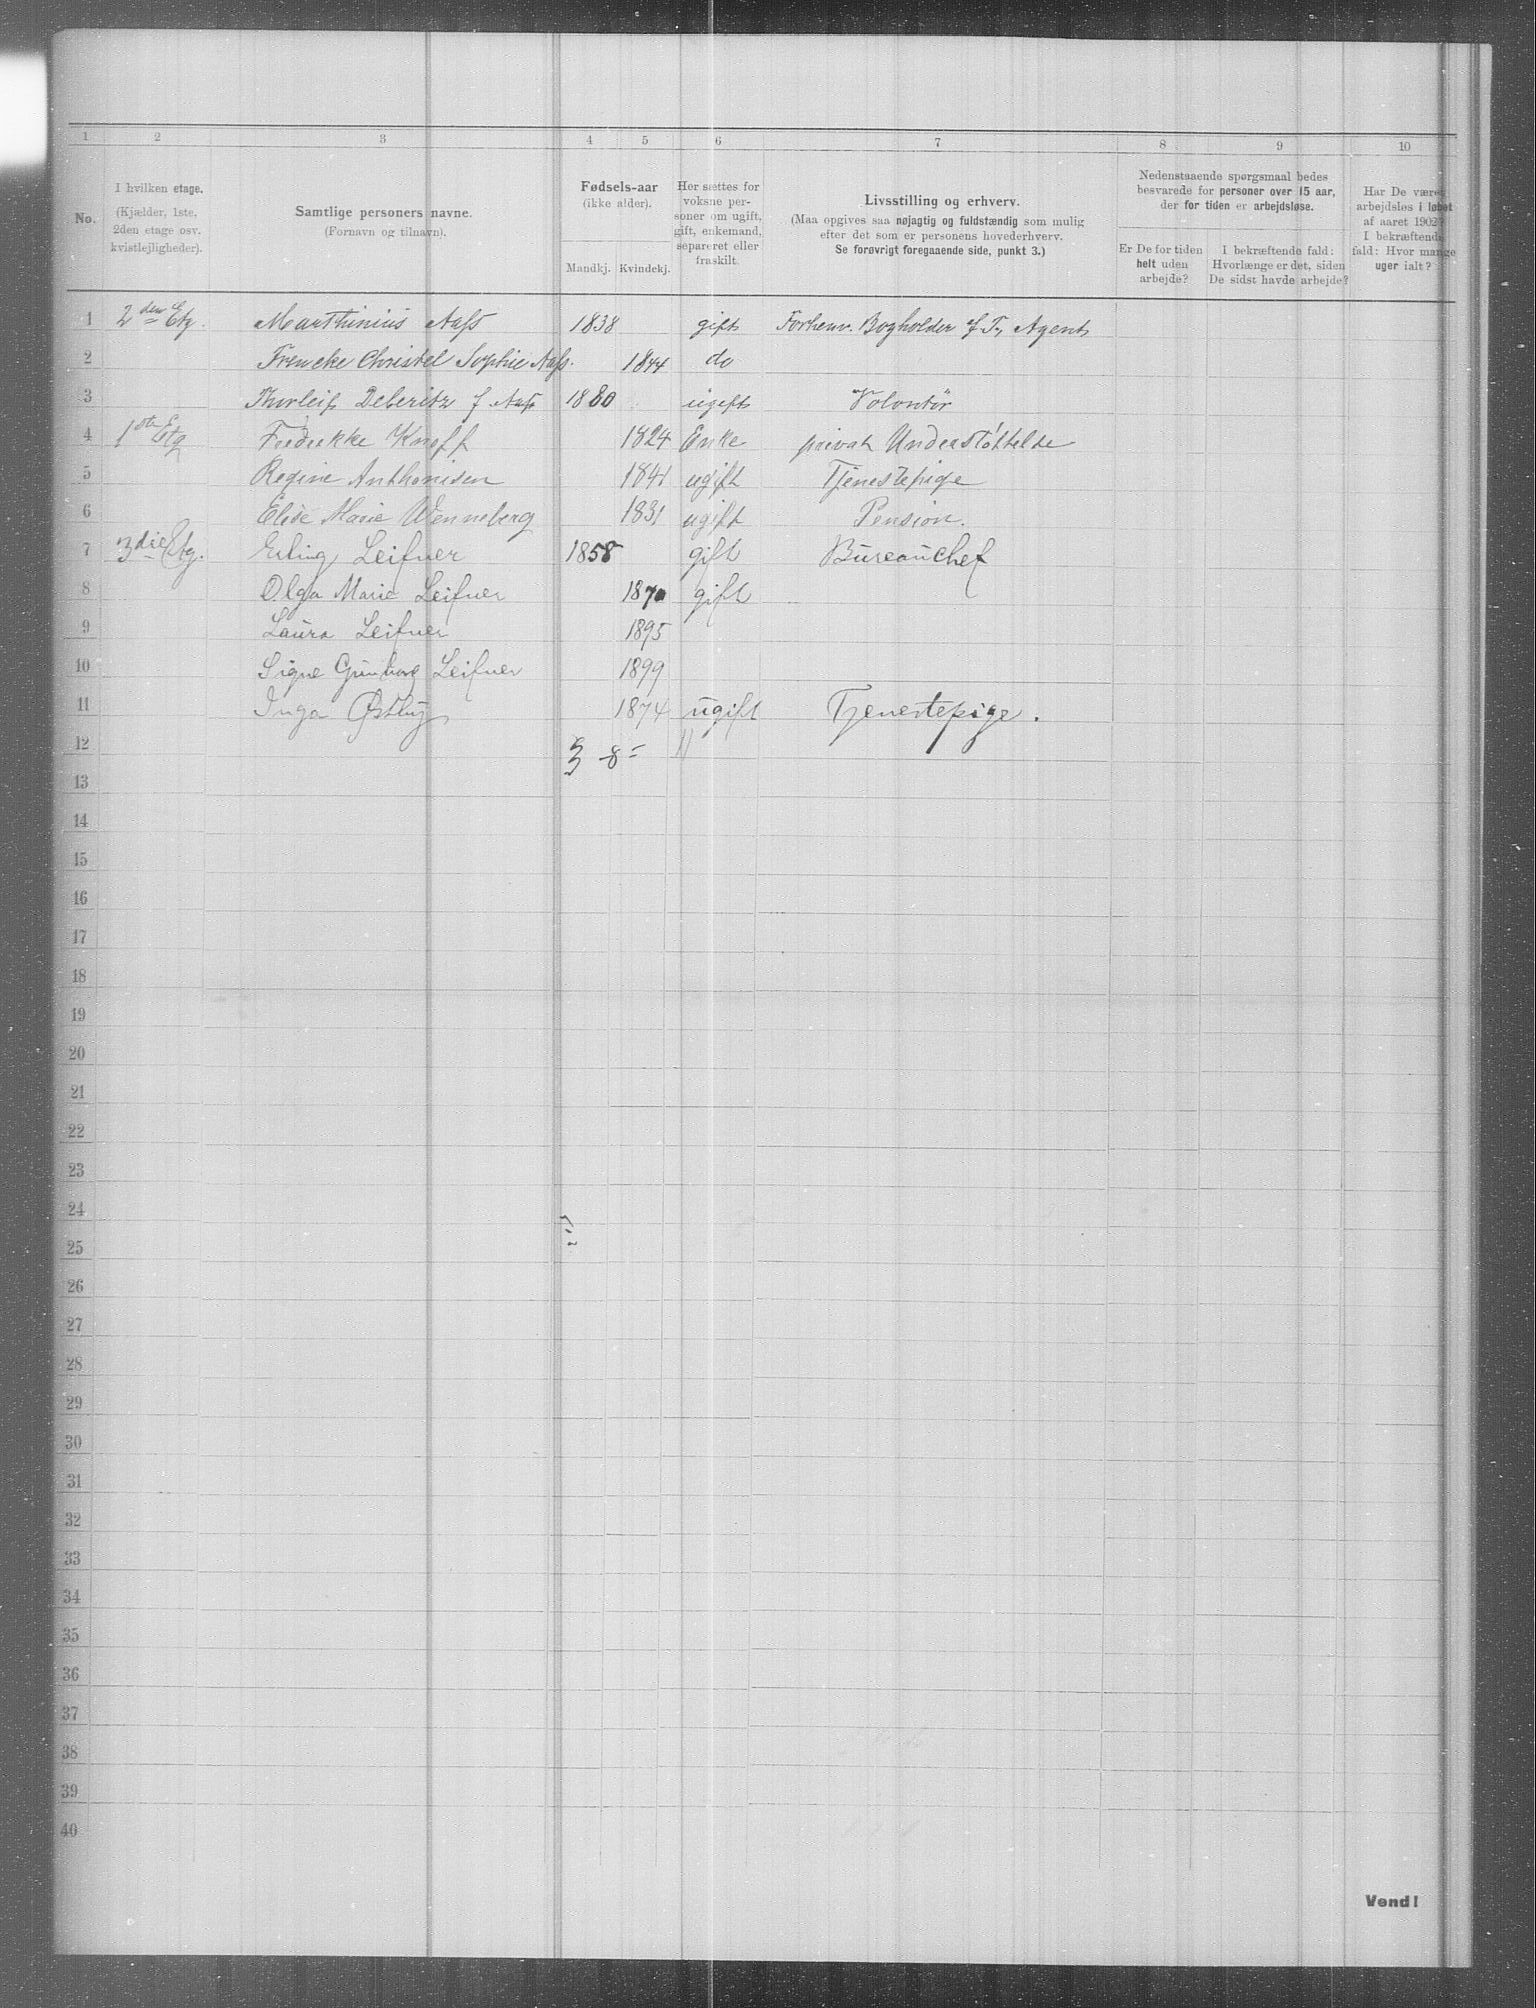 1 2 3 4 5 6 7 8 9 10
No.
I hvilken etage.
(Kjælder, 1ste,
2den etage osv.
kvistlejligheder).
Samtlige personers navne.
(Fornavn og tilnavn).
Fødsels-aar
(ikke alder).
Mandkj. Kvindekj.
Her sættes for
voksne per-
soner om ugift,
gift, enkemand,
separeret eller
fraskilt.
Livsstilling og erhverv.
(Maa opgives saa nøjagtig og fuldstændig som mulig
efter det som er personens hovederhverv.
Se forøvrigt foregaaende side, punkt 3.)
Nedenstaaende spørgsmaal bedes
besvarede for personer over 15 aar,
der for tiden er arbejdsløse.
Er De for tiden
helt uden
arbejde?
I bekræftende fald:
Hvorlænge er det, siden
De sidst havde arbejde?
Har De været
arbejdsløs i løbet
af aaret 1902?
I bekræftende
fald: Hvor mange
uger ialt?
1 2den Etg. Marthinius Aass 1838 gift Forhenv. Bogholder f. T. Agent
2 Frencke Christel Sophie Aass. 1844 do
3 Thorleif Deberitz f Aass 1880 ugift Volontör
4 1ste Etg Fredrikke Knoff 1824 Enke privat Understøttelse
5 Regine Anthonisen 1841 ugift Tjenestepige
6 Elise Marie Wenneberg 1831 ugift Pension.
7 3die Etg. Erling Leifner 1858 gift Bureauchef
8 Olga Marie Leifner 1870 gift
9 Laura Leifner 1895
10 Signe Gunborg Leifner 1899
11 Inga Østby 1874 ugift Tjenestepige.
12 3 8 = 11
13
14
15
16
17
18
19
20
21
22
23
24
25
26
27
28
29
30
31
32
33
34
35
36
37
38
39
40
Vend!